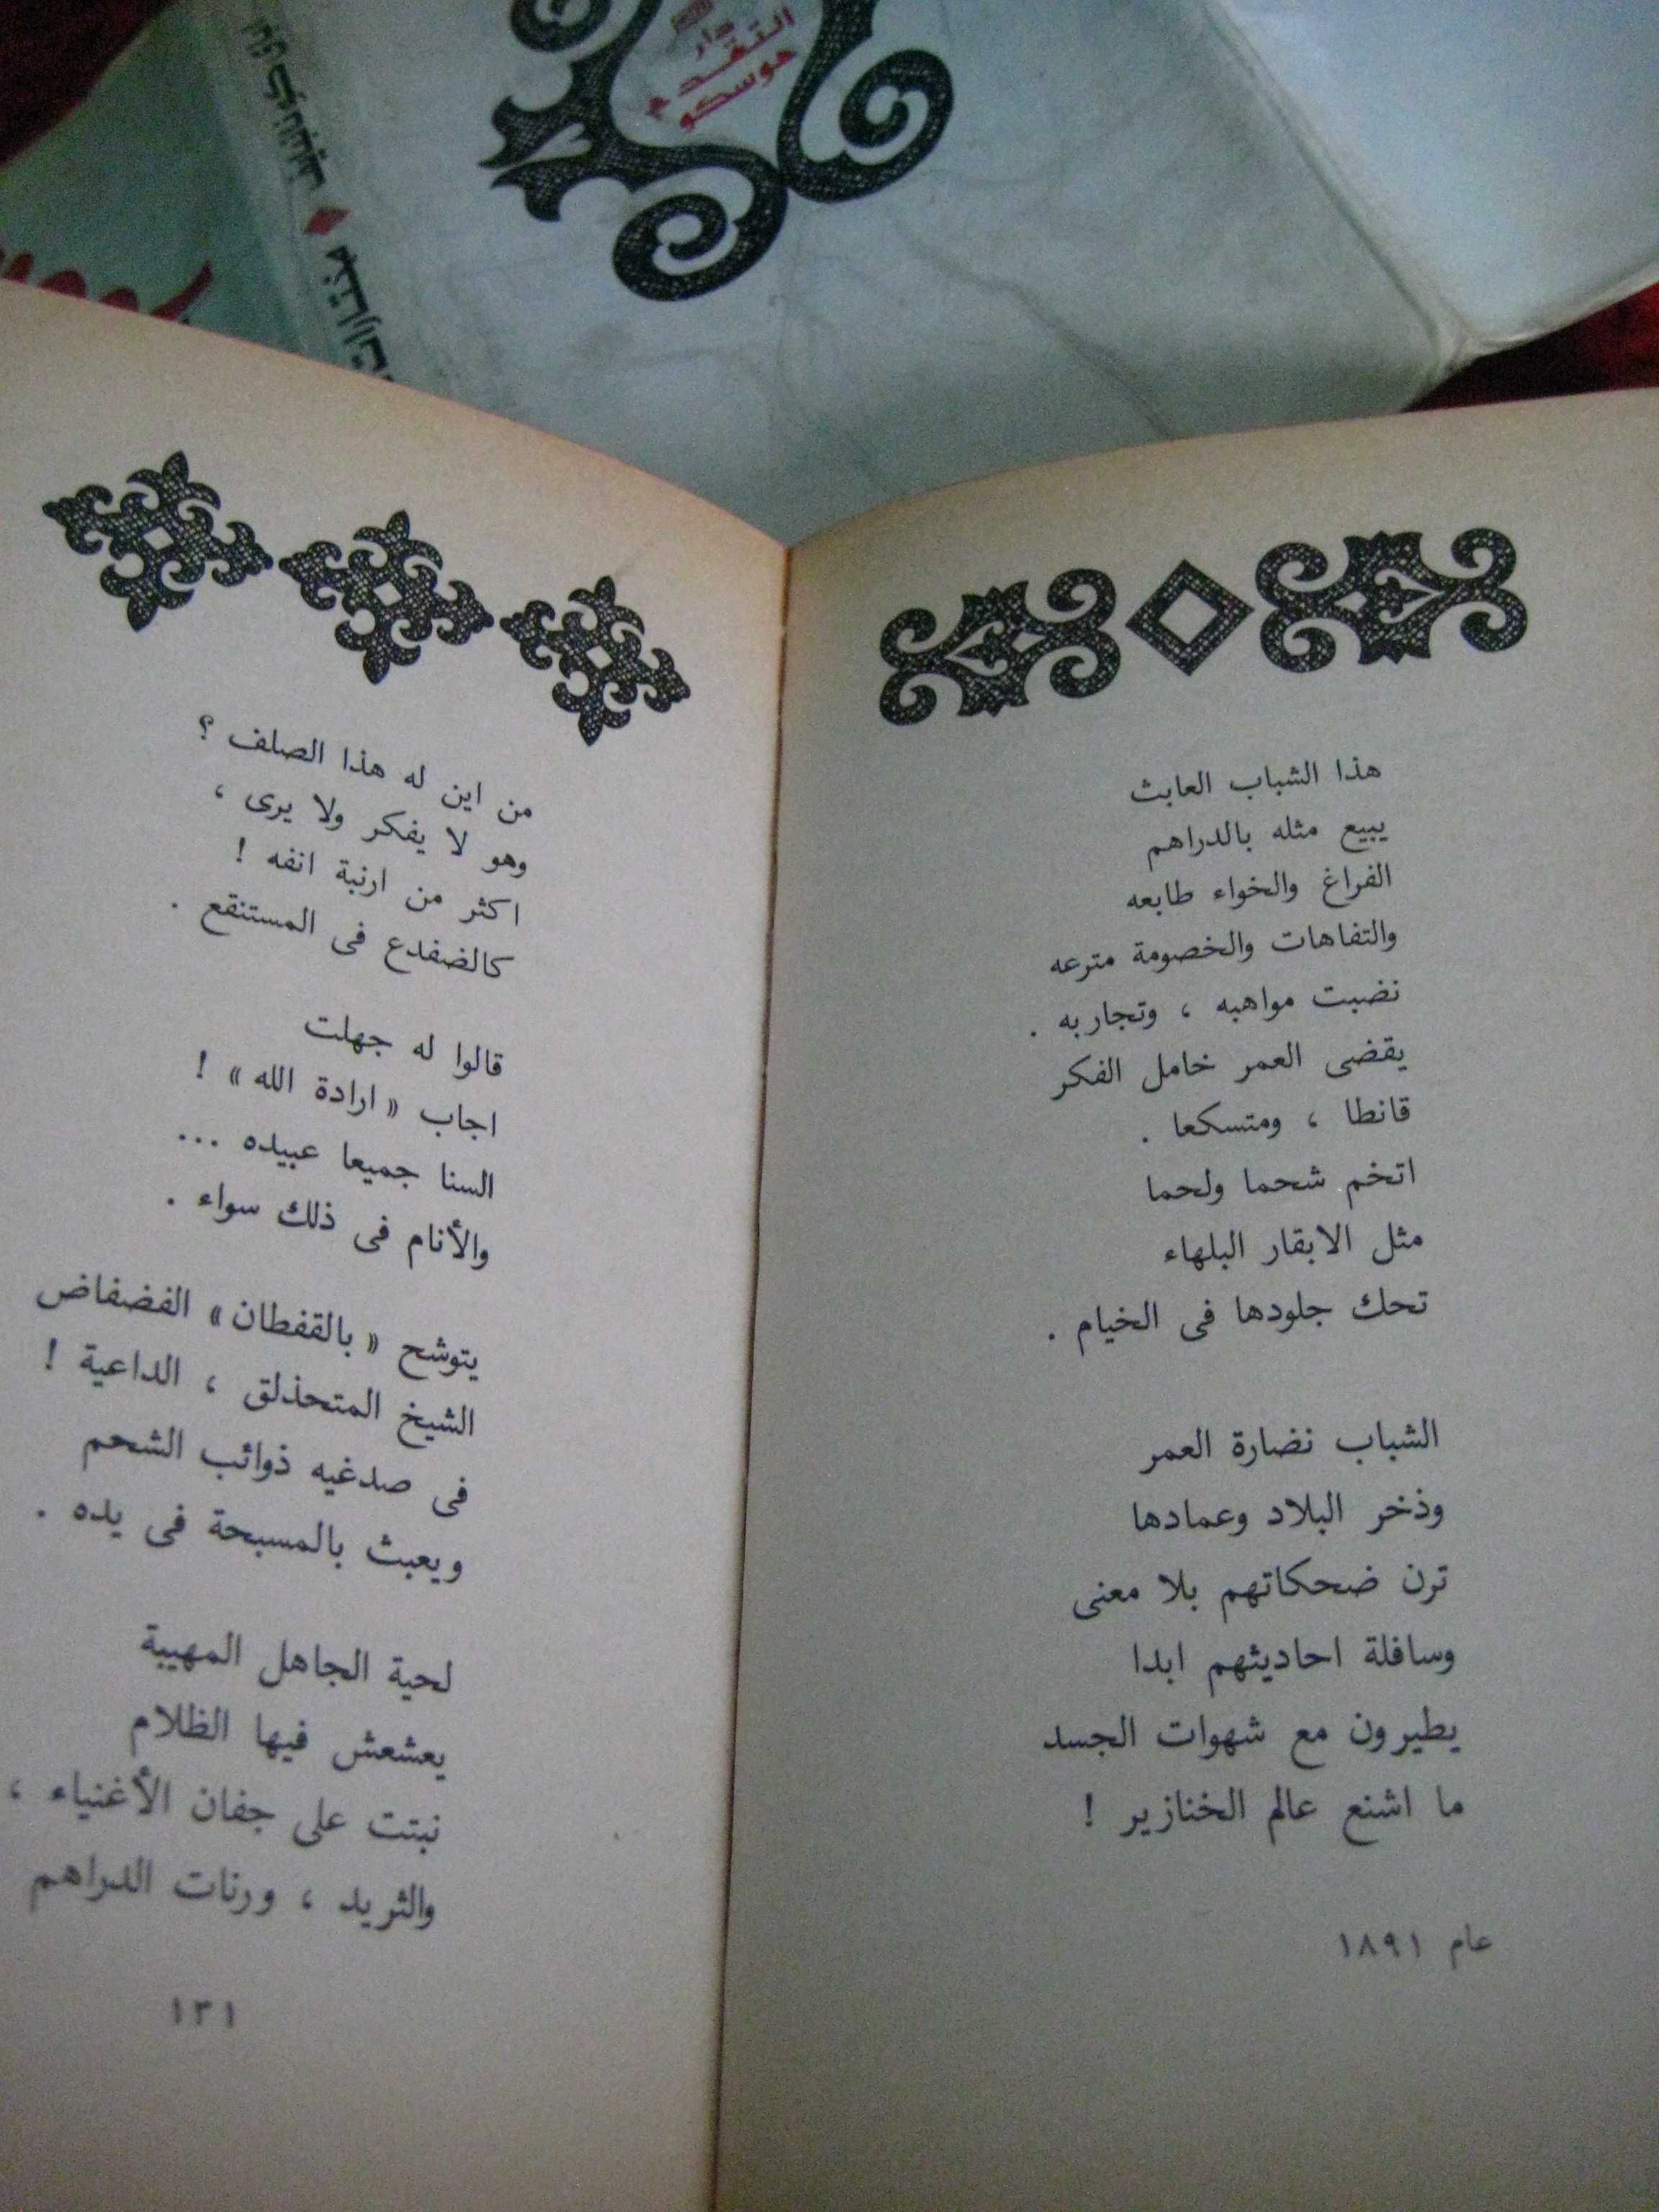 دار
التقدم
موسكو
هذا الشباب العابث
يبيع مثله بالدراهم
الفراغ والخواء طابعه
والتفاهات والخصومة مترعه
نضبت مواهبه ، وتجاربه .
يقضى العمر خامل الفكر
قانطا ، ومتسكعا .
اتخم شحما ولحما
مثل الابقار البلهاء
تحك جلودها فى الخيام .
الشباب نضارة العمر
وذخر البلاد وعمادها
ترن ضحكاتهم بلا معنى
وسافلة احاديثهم ابدا
يطيرون مع شهوات الجسد
ما اشنع عالم الخنازير !
عام ١٨٩١
من اين له هذا الصلف ؟
وهو لا يفكر ولا يرى ،
اكثر من ارنبة انفه !
كالضفدع فى المستنقع .
قالوا له جهلت
اجاب « ارادة الله » !
السنا جميعا عبيده ...
والأنام فى ذلك سواء .
يتوشح « بالقفطان » الفضفاض
الشيخ المتحذلق ، الداعية !
فى صدغيه ذوائب الشحم
ويعبث بالمسبحة فى يده .
لحية الجاهل المهيبة
يعشعش فيها الظلام
نبتت على جفان الأغنياء ،
والثريد ، ورنات الدراهم
١٣١